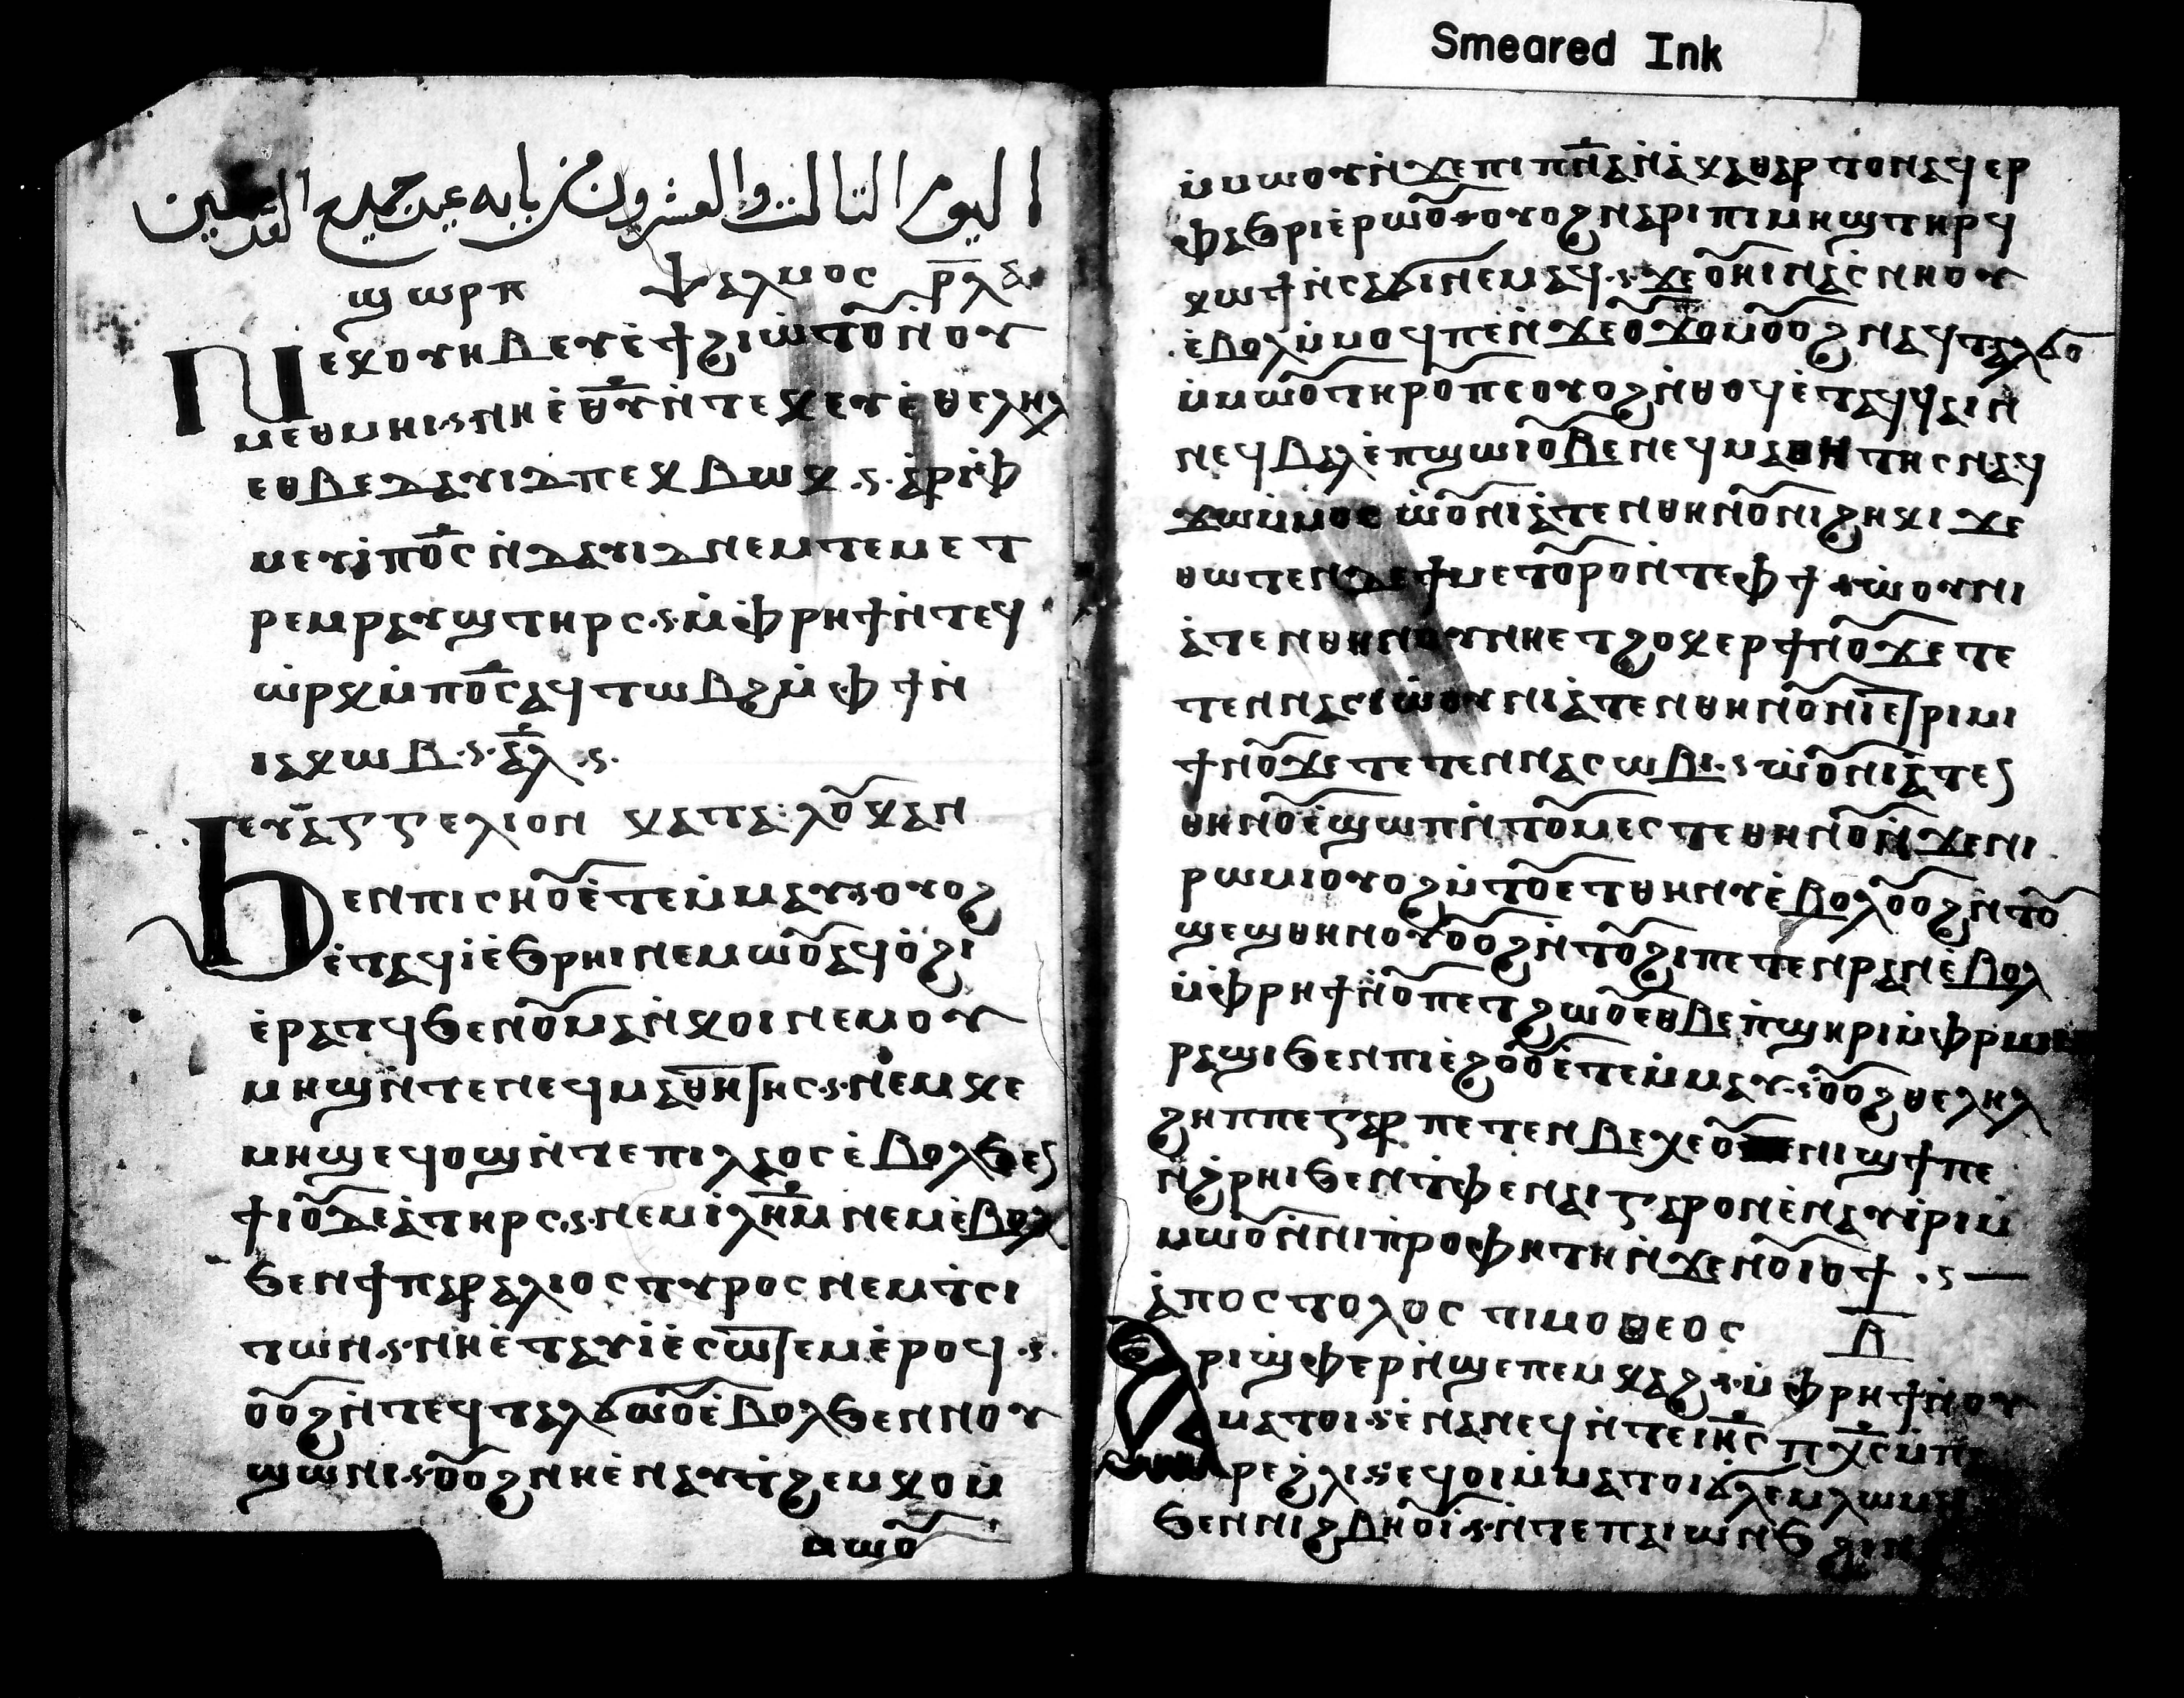 Smeared Ink
اليوم التالت والعشرون من بابه عيد جميع القديسين
ϣⲱⲣⲡ ⲯⲁⲗⲙⲟⲥ ⲣ̅ⲗⲁ
Ⲛⲉⲕⲟⲩⲏⲃ ⲉⲩⲉ̀ϯϩⲓⲱ̀ⲧⲟ̅ⲛ̀ⲟⲩ
ⲙⲉⲑⲙⲏⲓ·ⲥ·ⲛⲏⲉ̀ⲑ̅ⲩ̅ⲛ̀ⲧⲉⲕⲉⲩⲉ̀ⲑⲉⲗⲏⲗ
ⲉⲑⲃⲉⲇⲁⲩⲓⲇⲡⲉⲕⲃⲱⲕ·ⲥ·ⲁ̀ⲣⲓⲫ̀
ⲙⲉⲩⲓ̀ⲡⲟ̅ⲥ̅ⲛ̀ⲇⲁⲩⲓⲇⲛⲉⲙⲧⲉⲙⲉⲧ
ⲣⲉⲙⲣⲁⲩϣⲧⲏⲣⲥ·ⲥ·ⲙ̀ⲫⲣⲏϯⲛ̀ⲧⲉϥ
ⲱ̀ⲣⲕⲙ̀ⲡⲟ̅ⲥ̅ⲁϥⲧⲱⲃϩⲙ̀ⲫϯⲛ̀
ⲓⲁⲕⲱⲃ·ⲥ·ⲁ̅ⲗ̅·ⲥ·
ⲉⲩⲁⲅⲅⲉⲗⲓⲟⲛ ⲕⲁⲧⲁ: ⲗⲟ̅ⲕⲁⲛ
Ϧⲉⲛⲡⲓⲥⲏⲟ̅ⲉ̀ⲧⲉⲙ̀ⲙⲁⲩ·ⲥ·ⲟⲩⲟϩ
ⲉ̀ⲧⲁϥⲓ̀ⲉ̀ϧⲣⲏⲓⲛⲉⲙⲱⲟ̅ⲁϥⲟ̀ϩⲓ
ⲉ̀ⲣⲁⲧϥϧⲉⲛⲟ̅ⲙⲁⲛ̀ⲕⲟⲓⲛⲉⲙⲟⲩ
ⲙⲏϣⲛ̀ⲧⲉⲛⲉϥⲙⲁⲑⲏⲧⲏⲥ·ⲥ·ⲛⲉⲙⲕⲉ
ⲙⲏϣⲉϥⲟϣⲛ̀ⲧⲉⲡⲓⲗⲁⲟⲥⲉ̀ⲃⲟⲗϧⲉⲛ
ϯⲓⲟ̅ⲇⲉⲁ̀ⲧⲏⲣⲥ·ⲥ·ⲛⲉⲙⲓ̀ⲗⲏ̅ⲙ̅ⲛⲉⲙⲉ̀ⲃⲟⲗ
ϧⲉⲛϯⲡⲁⲣⲁⲗⲓⲟⲥⲧⲩⲣⲟⲥⲛⲉⲙⲧ̀ⲥⲓ
ⲧⲱⲛ·ⲥ·ⲛⲏⲉ̀ⲧⲁⲩⲓ̀ⲉ̀ⲥⲱⲧⲉⲙⲉ̀ⲣⲟϥ·ⲥ·
ⲟ̅ⲟϩⲛ̀ⲧⲉϥⲧⲁⲗϭⲱⲟ̅ⲉ̀ⲃⲟⲗϧⲉⲛⲛⲟⲩ
ϣⲱⲛⲓ·ⲥ·ⲟ̅ⲟϩⲛⲏⲉ̀ⲛⲁⲩⲧ̀ϩⲉⲙⲕⲟⲙ̀
ⲙⲱⲟ̅
ⲙ̀ⲙⲱⲟⲩⲛ̀ϫⲉⲡⲓⲡⲛ̅ⲁ̅ⲛ̀ⲁ̀ⲕⲁⲑⲁⲣⲧⲟⲛⲁϥⲉⲣ
ⲫⲁϧⲣⲓⲉ̀ⲣⲱⲟ̅·ⲥ·ⲟⲩⲟϩⲛⲁⲣⲓⲡⲓⲙⲏϣⲧⲏⲣϥ
ⲕⲱϯⲛ̀ⲥⲁϭⲓⲛⲉⲙⲁϥ·ⲥ·ϫⲉⲟ̅ⲏⲓⲛⲁⲥ̀ⲛⲏⲟⲩ
ⲉ̀ⲃⲟⲗⲙ̀ⲙⲟϥⲡⲉⲛ̀ϫⲉⲟ̅ϫⲟⲙⲟ̅ⲟϩⲛⲁϥⲧⲁⲗϭⲟ
ⲙ̀ⲙⲱⲟ̅ⲧⲏⲣⲟ̅ⲡⲉⲟⲩⲟϩⲛ̀ⲑⲟϥⲉ̀ⲧⲁϥϥⲁⲓⲛ̀
ⲛⲉϥⲃⲁⲗⲉ̀ⲡϣⲱⲓⲟ̅ⲃⲉⲛⲉϥⲙⲁⲑⲏⲧⲏⲥⲛⲁϥ
ϫⲱⲙ̀ⲙⲟⲥ ⲱ̀ⲟ̅ⲛⲓⲁ̀ⲧⲉⲛⲑⲏⲛⲟ̅ⲛⲓϩⲏⲕⲓ ϫⲉ
ⲑⲱⲧⲉⲛⲧⲉϯⲙⲉⲧⲟ̅ⲣⲟⲛ̀ⲧⲉⲫϯ·ⲥ·ⲱⲟⲩⲛⲓ
ⲁ̀ⲧⲉⲛⲑⲏⲛⲟⲩⲛⲏⲉⲧϩⲟⲕⲉⲣϯⲛⲟ̅ϫⲉⲧⲉ
ⲧⲉⲛⲛⲁⲥⲓⲱⲟⲩⲛⲓⲁ̀ⲧⲉⲛⲑⲏⲛⲟ̅ⲛⲓⲉⲧⲣⲓⲙⲓ
ϯⲛⲟ̅ϫⲉⲧⲉⲧⲉⲛⲛⲁⲥⲱⲃⲓ·ⲥ·ⲱⲟ̅ⲛⲓⲁ̀ⲧⲉⲛ
ⲑⲏⲛⲟ̅ⲉ̀ϣⲱⲡⲛ̀ⲧⲟ̅ⲙⲉⲥⲧⲉⲑⲏⲛⲟ̅ⲛ̀ϫⲉⲛⲓ
ⲣⲱⲙⲓⲟⲩⲟϩⲛ̀ⲧⲟ̅ⲉⲧⲑⲏⲛⲩⲉ̀ⲃⲟⲗⲟ̅ⲟϩⲛ̀ⲧⲟ̅
ϣⲉϣⲑⲏⲛⲟⲩⲟ̅ⲟϩⲛ̀ⲧⲟ̅ϩⲓⲡⲉⲧⲉⲛⲣⲁⲛⲉ̀ⲃⲟⲗ
ⲙ̀ⲫⲣⲏϯⲛ̀ⲟ̅ⲡⲉⲧϩⲱⲟ̅ⲉⲑⲃⲉⲡ̀ϣⲏⲣⲓⲙ̀ⲫⲣⲱⲙⲓ
ⲣⲁϣⲓϧⲉⲛⲡⲓⲉ̀ϩⲟⲟ̅ⲉ̀ⲧⲉⲙ̀ⲙⲁⲩ·ⲥ·ⲟ̅ⲟϩⲑⲉⲗⲏⲗ
ϩⲏⲡⲡⲉⲅⲁⲣⲡⲉⲧⲉⲛⲃⲉⲭⲉⲟ̅ⲛⲓϣϯⲡⲉ
ⲛ̀ϩⲣⲏⲓϧⲉⲛⲧ̀ⲫⲉⲛⲁⲓⲅⲁⲣⲟⲛⲉ̀ⲛⲁⲩⲓ̀ⲣⲓⲙ̀
ⲙⲱⲟ̅ⲛ̀ⲛⲓⲡ̀ⲣⲟⲫⲏⲧⲏⲛ̀ϫⲉⲛⲟ̅ⲓⲟϯ·ⲥ
ⲁ̀ⲡⲟⲥⲧⲟⲗⲟⲥ ⲧⲓⲙⲟⲑⲉⲟⲥ ⲃ̅
Ⲁⲣⲓϣⲫⲉⲣⲛ̀ϣⲉⲡⲉⲙⲕⲁϩ·ⲥ·ⲙ̀ⲫⲣⲏϯⲛ̀ⲟⲩ
ⲙⲁⲧⲟⲓ·ⲥ·ⲉ̀ⲛⲁⲛⲉϥⲛ̀ⲧⲉⲓⲏ̅ⲥ̅ⲡⲭ̅ⲥ̅ⲙ̀ⲡ
ⲁⲣⲉϩⲗⲓ·ⲥ·ⲉϥⲟⲓⲙ̀ⲙⲁⲧⲟⲓϭⲗⲉⲙⲗⲱⲙ
ϧⲉⲛⲛⲓϩⲃⲏⲟ̅ⲓ̀·ⲥ·ⲛ̀ⲧⲉⲡⲁⲓⲱⲛϧ